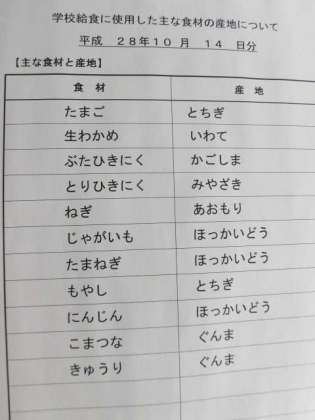 学校給食に使用した主な食材の産地について
平成 28年10月 14 日分
【主な食材と産地】
食材 産地
たまご とちぎ
生わかめ いわて
ぶたひきにく かごしま
とりひきにく みやざき
ねぎ あおもり
じゃがいも ほっかいどう
たまねぎ ほっかいどう
もやし とちぎ
にんじん ほっかいどう
こまつな ぐんま
きゅうり ぐんま